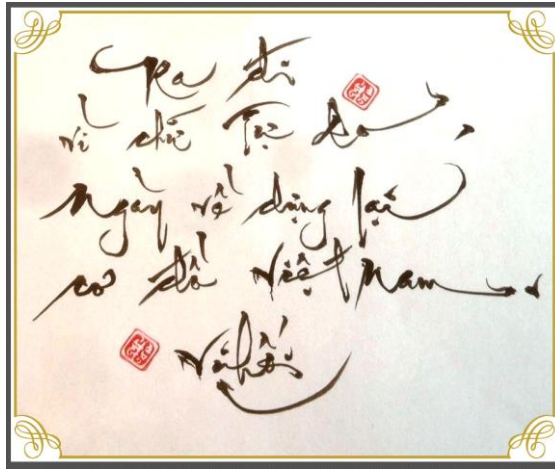 Ra đi
vì chữ Tự do,
Ngày về dựng lại
cơ đồ Việt Nam.